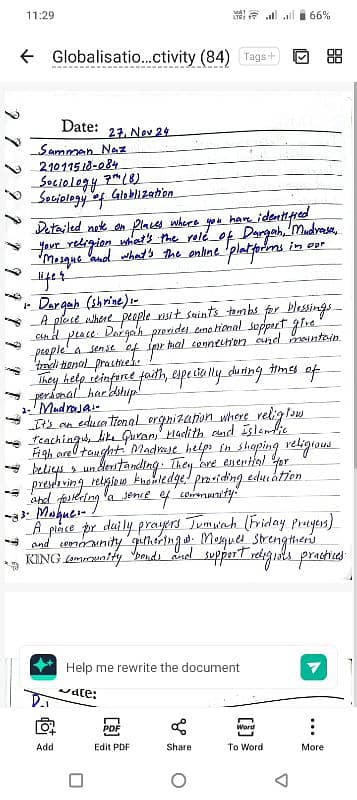 11:29
66%
Globalisatio...ctivity (84)
Tags+
Date: 27, Nov 24
Samman Naz
21011518-084
Sociology 7th (B)
Sociology of Globlization
Detailed note on Places where you have identified
your religion what's the role of Dargah, Madrasa,
Mosque and what's the online platforms in our
life?
1- Dargah (shrine):-
A place where people visit Saint's tombs for blessings
and peace Dargah provides emotional support give
people a sense of spiritual connection and maintain
traditional practices.
They help reinforce faith, especially during times of
personal hardship.
2- Madrasa:-
It's an educational orgnization where religiow
teachings, like Quran, Hadith and Islamic
Fiqh are taught. Madrase helps in shaping religious
beliefs & understanding. They are essential for
preserving religious knowledge, providing education
and fostering a sence of community.
3- Mosque:-
A place for daily prayers Jumuah (Friday Prayers)
and community gatherings. Mosques strengthens
KING community bonds and support religious practices
Help me rewrite the document
Date:
Add
PDF
Edit PDF
Share
Word
To Word
More